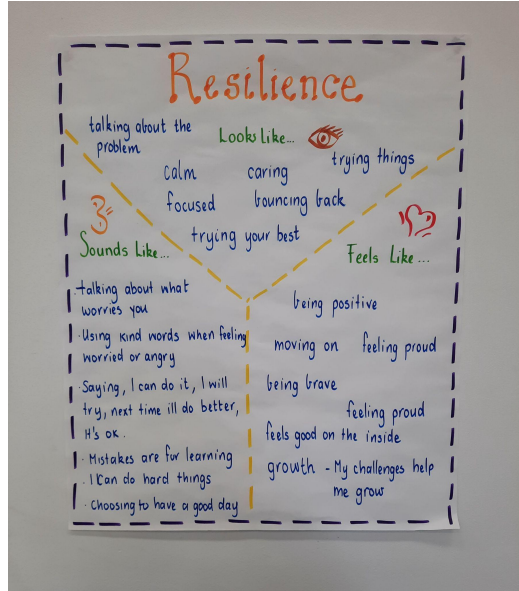 Resilience
talking about the
problem
Looks Like...
trying things
calm
caring
focused
bouncing back
trying your best
Sounds Like...
· talking about what
worries you
· Using kind words when feeling
worried or angry
· Saying, I can do it, I will
try, next time ill do better,
It's ok.
· Mistakes are for learning
· I Can do hard things
· Choosing to have a good day
Feels Like...
being positive
moving on
feeling proud
being brave
feeling proud
feels good on the inside
growth - My challenges help
me grow